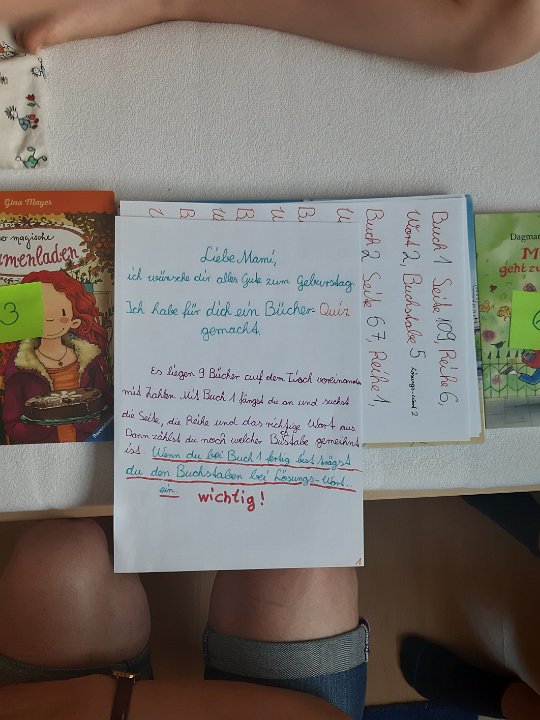 Gina Mayer
magische
menladen
3
Liebe Mami,
ich wünsche dir alles Gute zum Geburtstag.
Ich habe für dich ein Bücher-Quiz
gemacht.
Es liegen 9 Bücher auf dem Tisch
mit Zahlen. Mit Buch 1 fängst du an und suchst
die Seite, die Reihe und das richtige Wort aus
Dann zählst du noch welcher Bustabe gemeihnt
ist. Wenn du bei Buch 1 fertig bist trägst
du den Buchstaben bei Lösungs-Wort...
ein. wichtig!
1
Buch 1 Seite 109, Reihe 6,
Wort 2, Buchstabe 5
Lösungs-Wort 2
Buch 2 Seite 67, Reihe 1,
Dagmar
geht zu